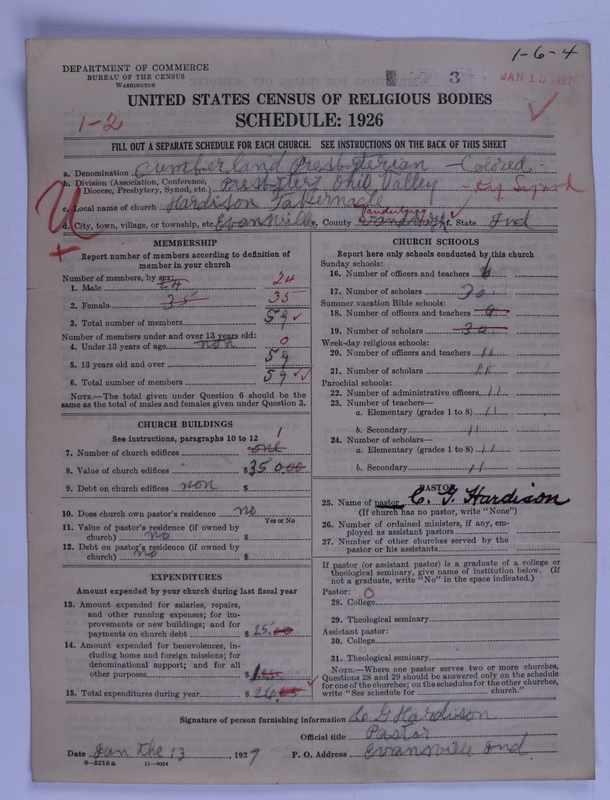 1-6-4
DEPARTMENT OF COMMERCE
BUREAU OF THE CENSUS
WASHINGTON
3
JAN 15 1927
UNITED STATES CENSUS OF RELIGIOUS BODIES
1-2
SCHEDULE: 1926
FILL OUT A SEPARATE SCHEDULE FOR EACH CHURCH. SEE INSTRUCTIONS ON THE BACK OF THIS SHEET
a. Denomination Cumberland Presbyterian - Colored
b. Division (Association, Conference, Diocese, Presbytery, Synod, etc.) Presbytery Ohio Valley - Ky Synod
c. Local name of church Hardison Tabernacle
d. City, town, village, or township, etc. Evansville e. County Vanderburg f. State Ind
MEMBERSHIP
Report number of members according to definition of
member in your church
Number of members, by sex:
1. Male 24 24
2. Female 35 35
3. Total number of members 59
Number of members under and over 13 years old:
4. Under 13 years of age non 0
5. 13 years old and over 59
6. Total number of members 59
NOTE.—The total given under Question 6 should be
same as the total of males and females given under Question 3.
CHURCH BUILDINGS
See instructions, paragraphs 10 to 12
7. Number of church edifices one 1
8. Value of church edifices $350.00
9. Debt on church edifices non $
10. Does church own pastor's residence no
Yes or No
11. Value of pastor's residence (if owned by
church) no $
12. Debt on pastor's residence (if owned by
church) no $
EXPENDITURES
Amount expended by your church during last fiscal year
13. Amount expended for salaries, repairs,
and other running expenses; for im-
provements or new buildings; and for
payments on church debt $25.00
14. Amount expended for benevolences, in-
cluding home and foreign missions; for
denominational support; and for all
other purposes $1
15. Total expenditures during year $26
CHURCH SCHOOLS
Report here only schools conducted by this church
Sunday schools:
16. Number of officers and teachers 6
17. Number of scholars 30
Summer vacation Bible schools:
18. Number of officers and teachers
19. Number of scholars 30
Week-day religious schools:
20. Number of officers and teachers 11
21. Number of scholars 11
Parochial schools:
22. Number of administrative officers 11
23. Number of teachers—
a. Elementary (grades 1 to 8) 11
b. Secondary 11
24. Number of scholars—
a. Elementary (grades 1 to 8) 11
b. Secondary 11
PASTOR
25. Name of pastor C. G. Hardison
(If church has no pastor, write "None")
26. Number of ordained ministers, if any, em-
ployed as assistant pastors
27. Number of other churches served by the
pastor or his assistants
If pastor (or assistant pastor) is a graduate of a college or
theological seminary, give name of institution below. (If
not a graduate, write "No" in the space indicated.)
Pastor: 0
28. College
29. Theological seminary
Assistant pastor:
30. College
31. Theological seminary
NOTE.—Where one pastor serves two or more churches,
Questions 28 and 29 should be answered only on the schedule
for one of the churches; on the schedules for the other churches,
write "See schedule for church."
Signature of person furnishing information C. G Hardison
Official title Pastor
Date Jan the 13 1927 P. O. Address Evansville Ind
8—5518 a 11—9064